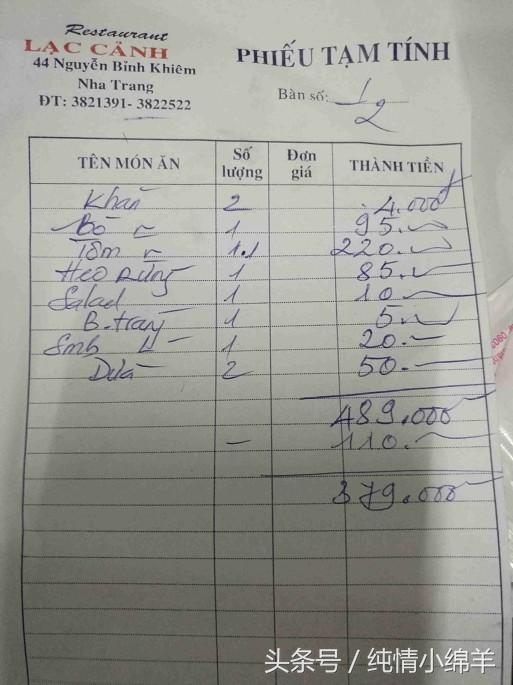 Restaurant
LẠC CẢNH
44 Nguyễn Bỉnh Khiêm
Nha Trang
ĐT: 3821391- 3822522
PHIẾU TẠM TÍNH
Bàn số: 1/2
TÊN MÓN ĂN Số lượng Đơn giá THÀNH TIỀN
Khăn 2 4.000
Bò 1 95.
Tôm 1.1 220.
Heo Rừng 1 85.
Salad 1 10
B. tray 1 5.
1 20.
Dừa 2 50.
489.000
- 110.
379.000
头条号 / 纯情小绵羊